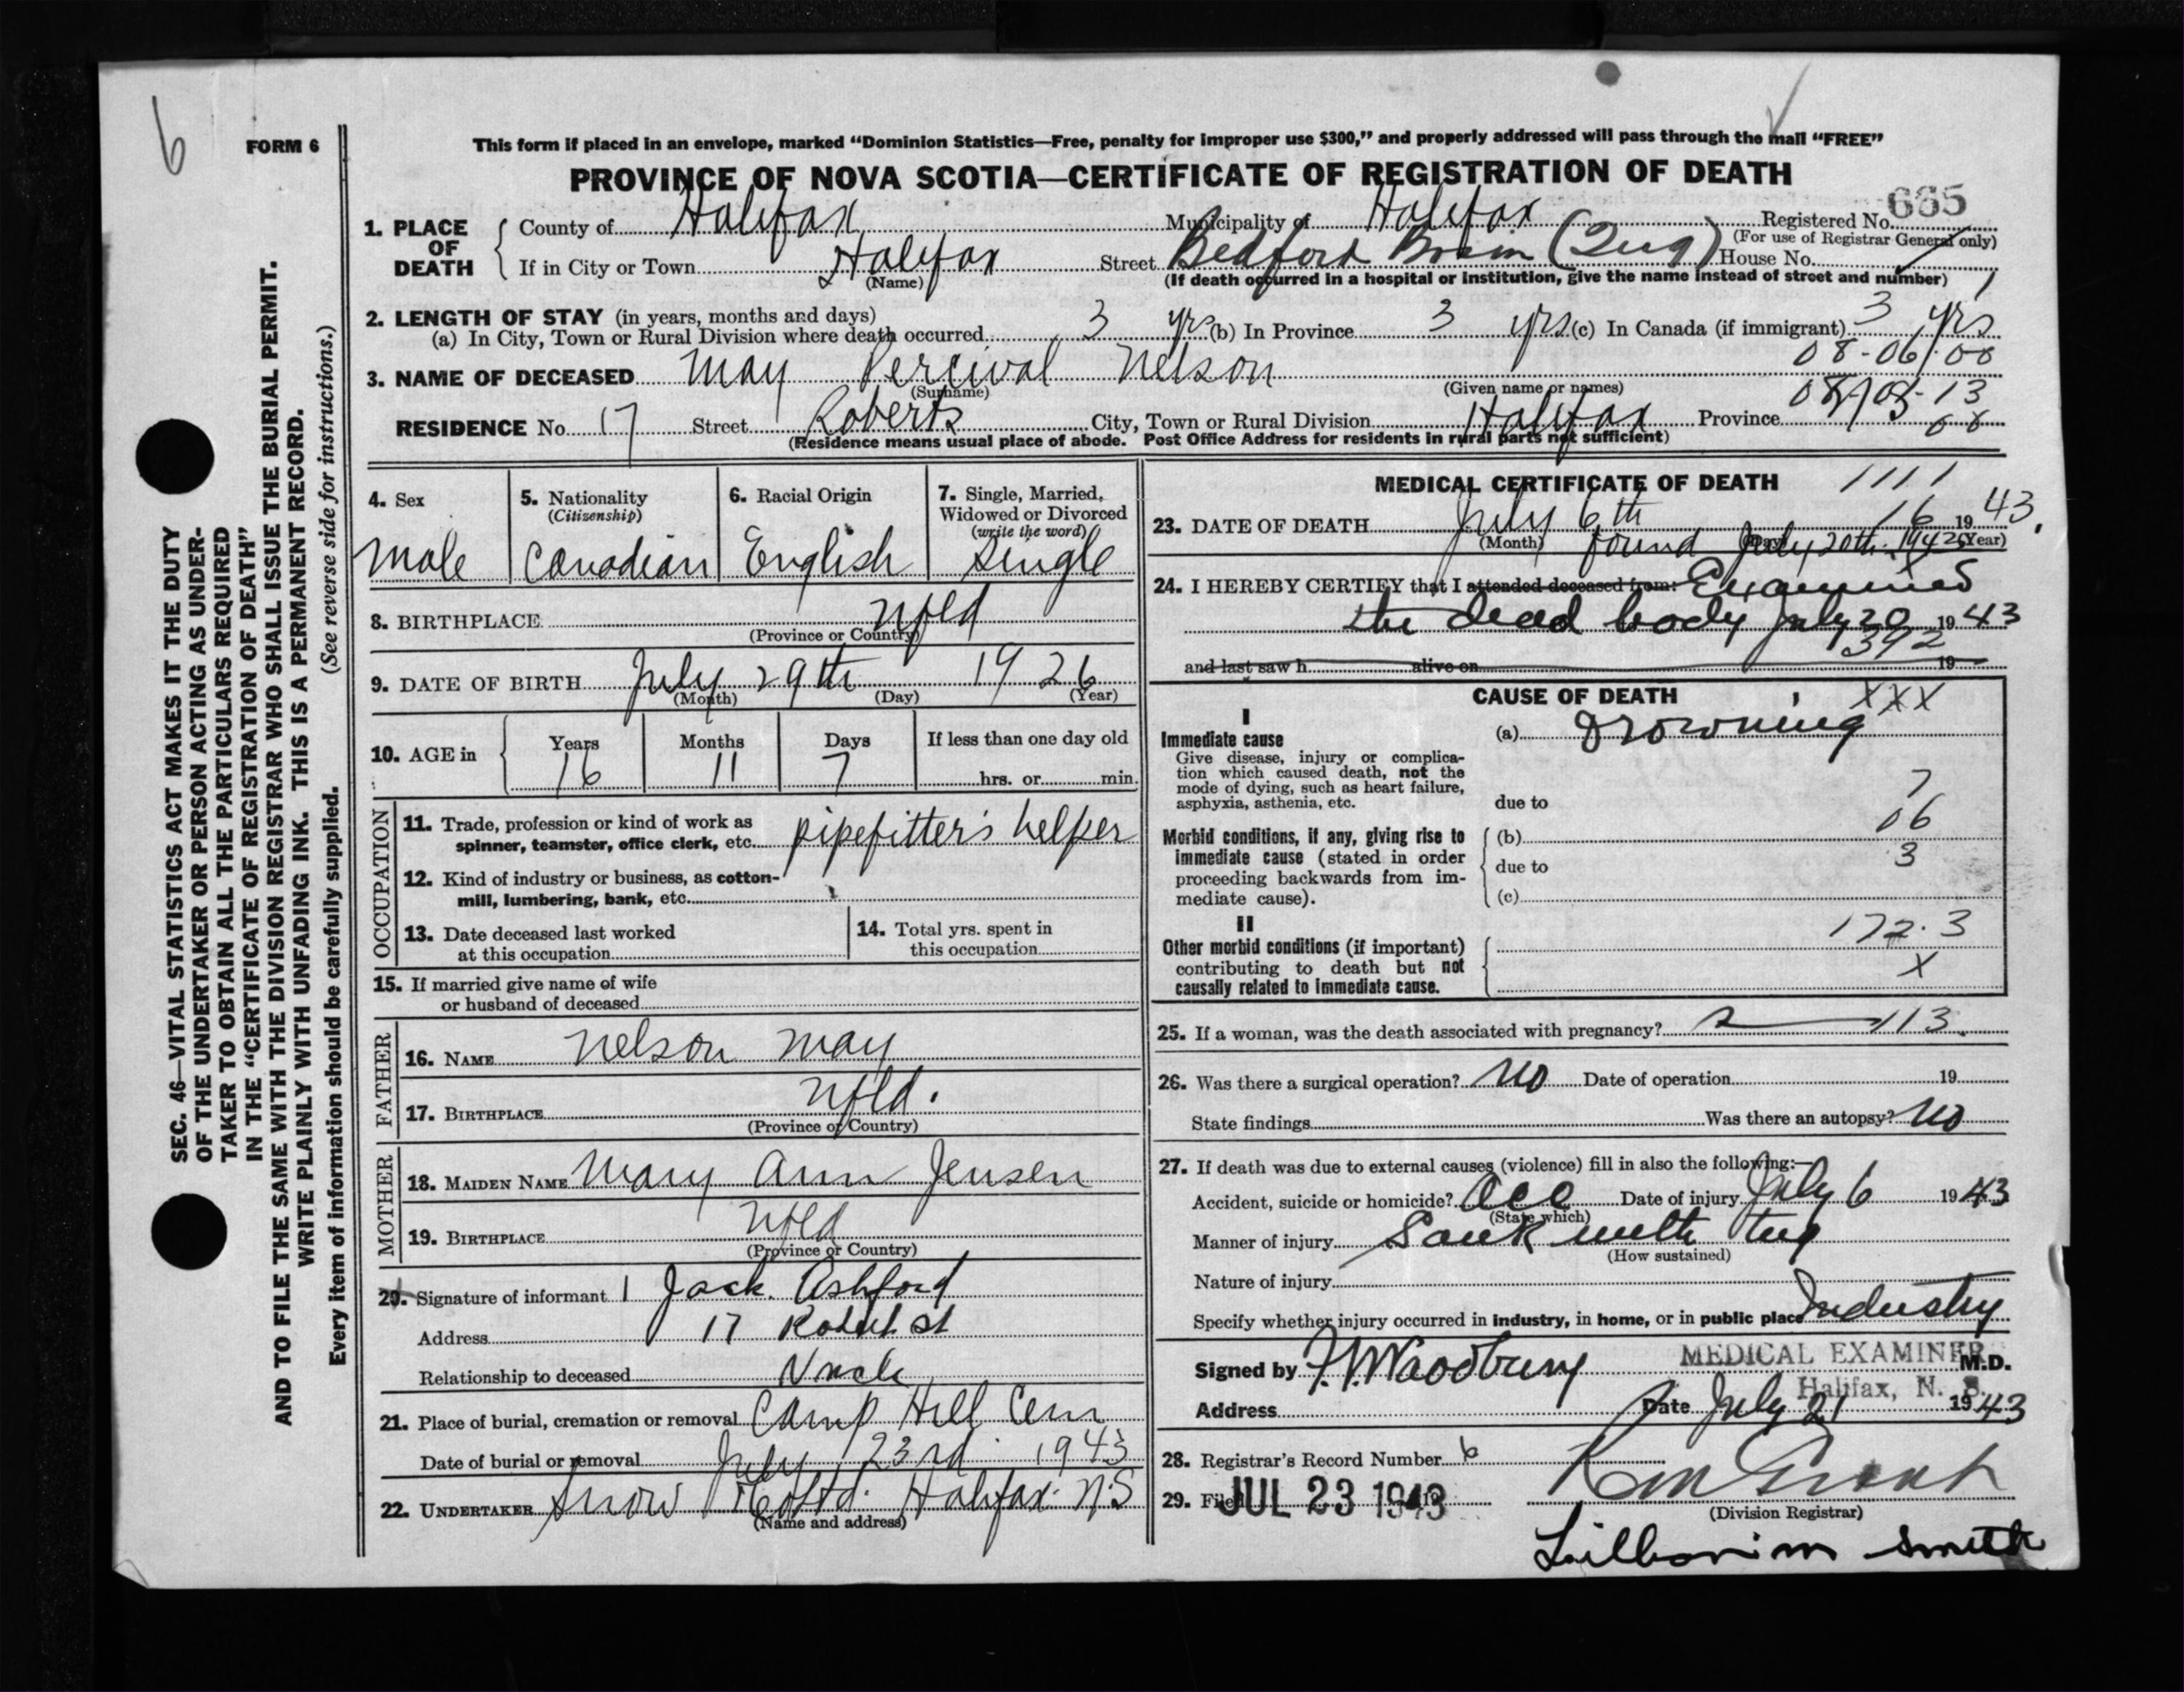 6
FORM 6
This form if placed in an envelope, marked "Dominion Statistics—Free, penalty for improper use $300," and properly addressed will pass through the mail "FREE"
PROVINCE OF NOVA SCOTIA—CERTIFICATE OF REGISTRATION OF DEATH
SEC. 46—VITAL STATISTICS ACT MAKES IT THE DUTY
OF THE UNDERTAKER OR PERSON ACTING AS UNDER-
TAKER TO OBTAIN ALL THE PARTICULARS REQUIRED
IN THE "CERTIFICATE OF REGISTRATION OF DEATH"
AND TO FILE THE SAME WITH THE DIVISION REGISTRAR WHO SHALL ISSUE THE BURIAL PERMIT.
WRITE PLAINLY WITH UNFADING INK. THIS IS A PERMANENT RECORD.
Every item of information should be carefully supplied. (See reverse side for instructions.)
1. PLACE OF DEATH
County of Halifax Municipality of Halifax Registered No. 665
(For use of Registrar General only)
If in City or Town Halifax Street Bedford (Tug) House No.
(Name) (If death occurred in a hospital or institution, give the name instead of street and number) 1
2. LENGTH OF STAY (in years, months and days)
(a) In City, Town or Rural Division where death occurred 3 yrs (b) In Province 3 yrs (c) In Canada (if immigrant) 3 yrs
08-06-00
3. NAME OF DECEASED May Percival Nelson
(Surname) (Given name or names) 08-08-13
RESIDENCE No. 17 Street Roberts City, Town or Rural Division Halifax Province
(Residence means usual place of abode. Post Office Address for residents in rural parts not sufficient)
4. Sex
Male
5. Nationality
(Citizenship)
Canadian
6. Racial Origin
English
7. Single, Married,
Widowed or Divorced
(write the word)
Single
8. BIRTHPLACE Nfld
(Province or Country)
9. DATE OF BIRTH July 29th 1926
(Month) (Day) (Year)
10. AGE in Years Months Days If less than one day old
16 11 7 hrs. or min.
OCCUPATION
11. Trade, profession or kind of work as
spinner, teamster, office clerk, etc. pipefitter's helper
12. Kind of industry or business, as cotton-
mill, lumbering, bank, etc.
13. Date deceased last worked
at this occupation
14. Total yrs. spent in
this occupation
15. If married give name of wife
or husband of deceased
FATHER
16. NAME Nelson May
17. BIRTHPLACE Nfld.
(Province or Country)
MOTHER
18. MAIDEN NAME Mary Ann Jensen
19. BIRTHPLACE Nfld
(Province or Country)
20. Signature of informant Jack Ashford
Address 17 Robert St
Relationship to deceased Uncle
21. Place of burial, cremation or removal Camp Hill Cem
Date of burial or removal July 23rd 1943
22. UNDERTAKER Snow & Co Ltd. Halifax N.S
(Name and address)
MEDICAL CERTIFICATE OF DEATH 1111
23. DATE OF DEATH July 6th 16 1943.
(Month) (Day) (Year)
found July 20th 1942
24. I HEREBY CERTIFY that I attended deceased from: Examined
the dead body July 20 1943
392
and last saw h alive on 19
CAUSE OF DEATH XXX
I
Immediate cause
Give disease, injury or complica-
tion which caused death, not the
mode of dying, such as heart failure,
asphyxia, asthenia, etc.
(a) Drowning
due to 7
Morbid conditions, if any, giving rise to
immediate cause (stated in order
proceeding backwards from im-
mediate cause).
(b) 06
due to 3
(c)
II
Other morbid conditions (if important)
contributing to death but not
causally related to immediate cause.
172.3
X
25. If a woman, was the death associated with pregnancy? 113.
26. Was there a surgical operation? No Date of operation 19
State findings Was there an autopsy? No
27. If death was due to external causes (violence) fill in also the following:—
Accident, suicide or homicide? Acc Date of injury July 6 1943
(State which)
Manner of injury Sank with tug
(How sustained)
Nature of injury
Specify whether injury occurred in industry, in home, or in public place Industry
Signed by Woodbury MEDICAL EXAMINER M.D.
Halifax, N. S.
Address Date July 21 1943
28. Registrar's Record Number 6
29. Filed JUL 23 1943
(Division Registrar)
Smith